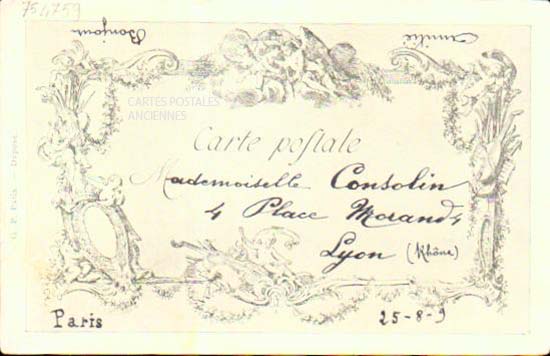 754759
Bonjour
Amitié
CARTES POSTALES
ANCIENNES
Carte postale
Mademoiselle Consolin
4 Place Morand 4
Lyon (Rhône)
G. P. Paris. Déposé.
Paris
25-8-9